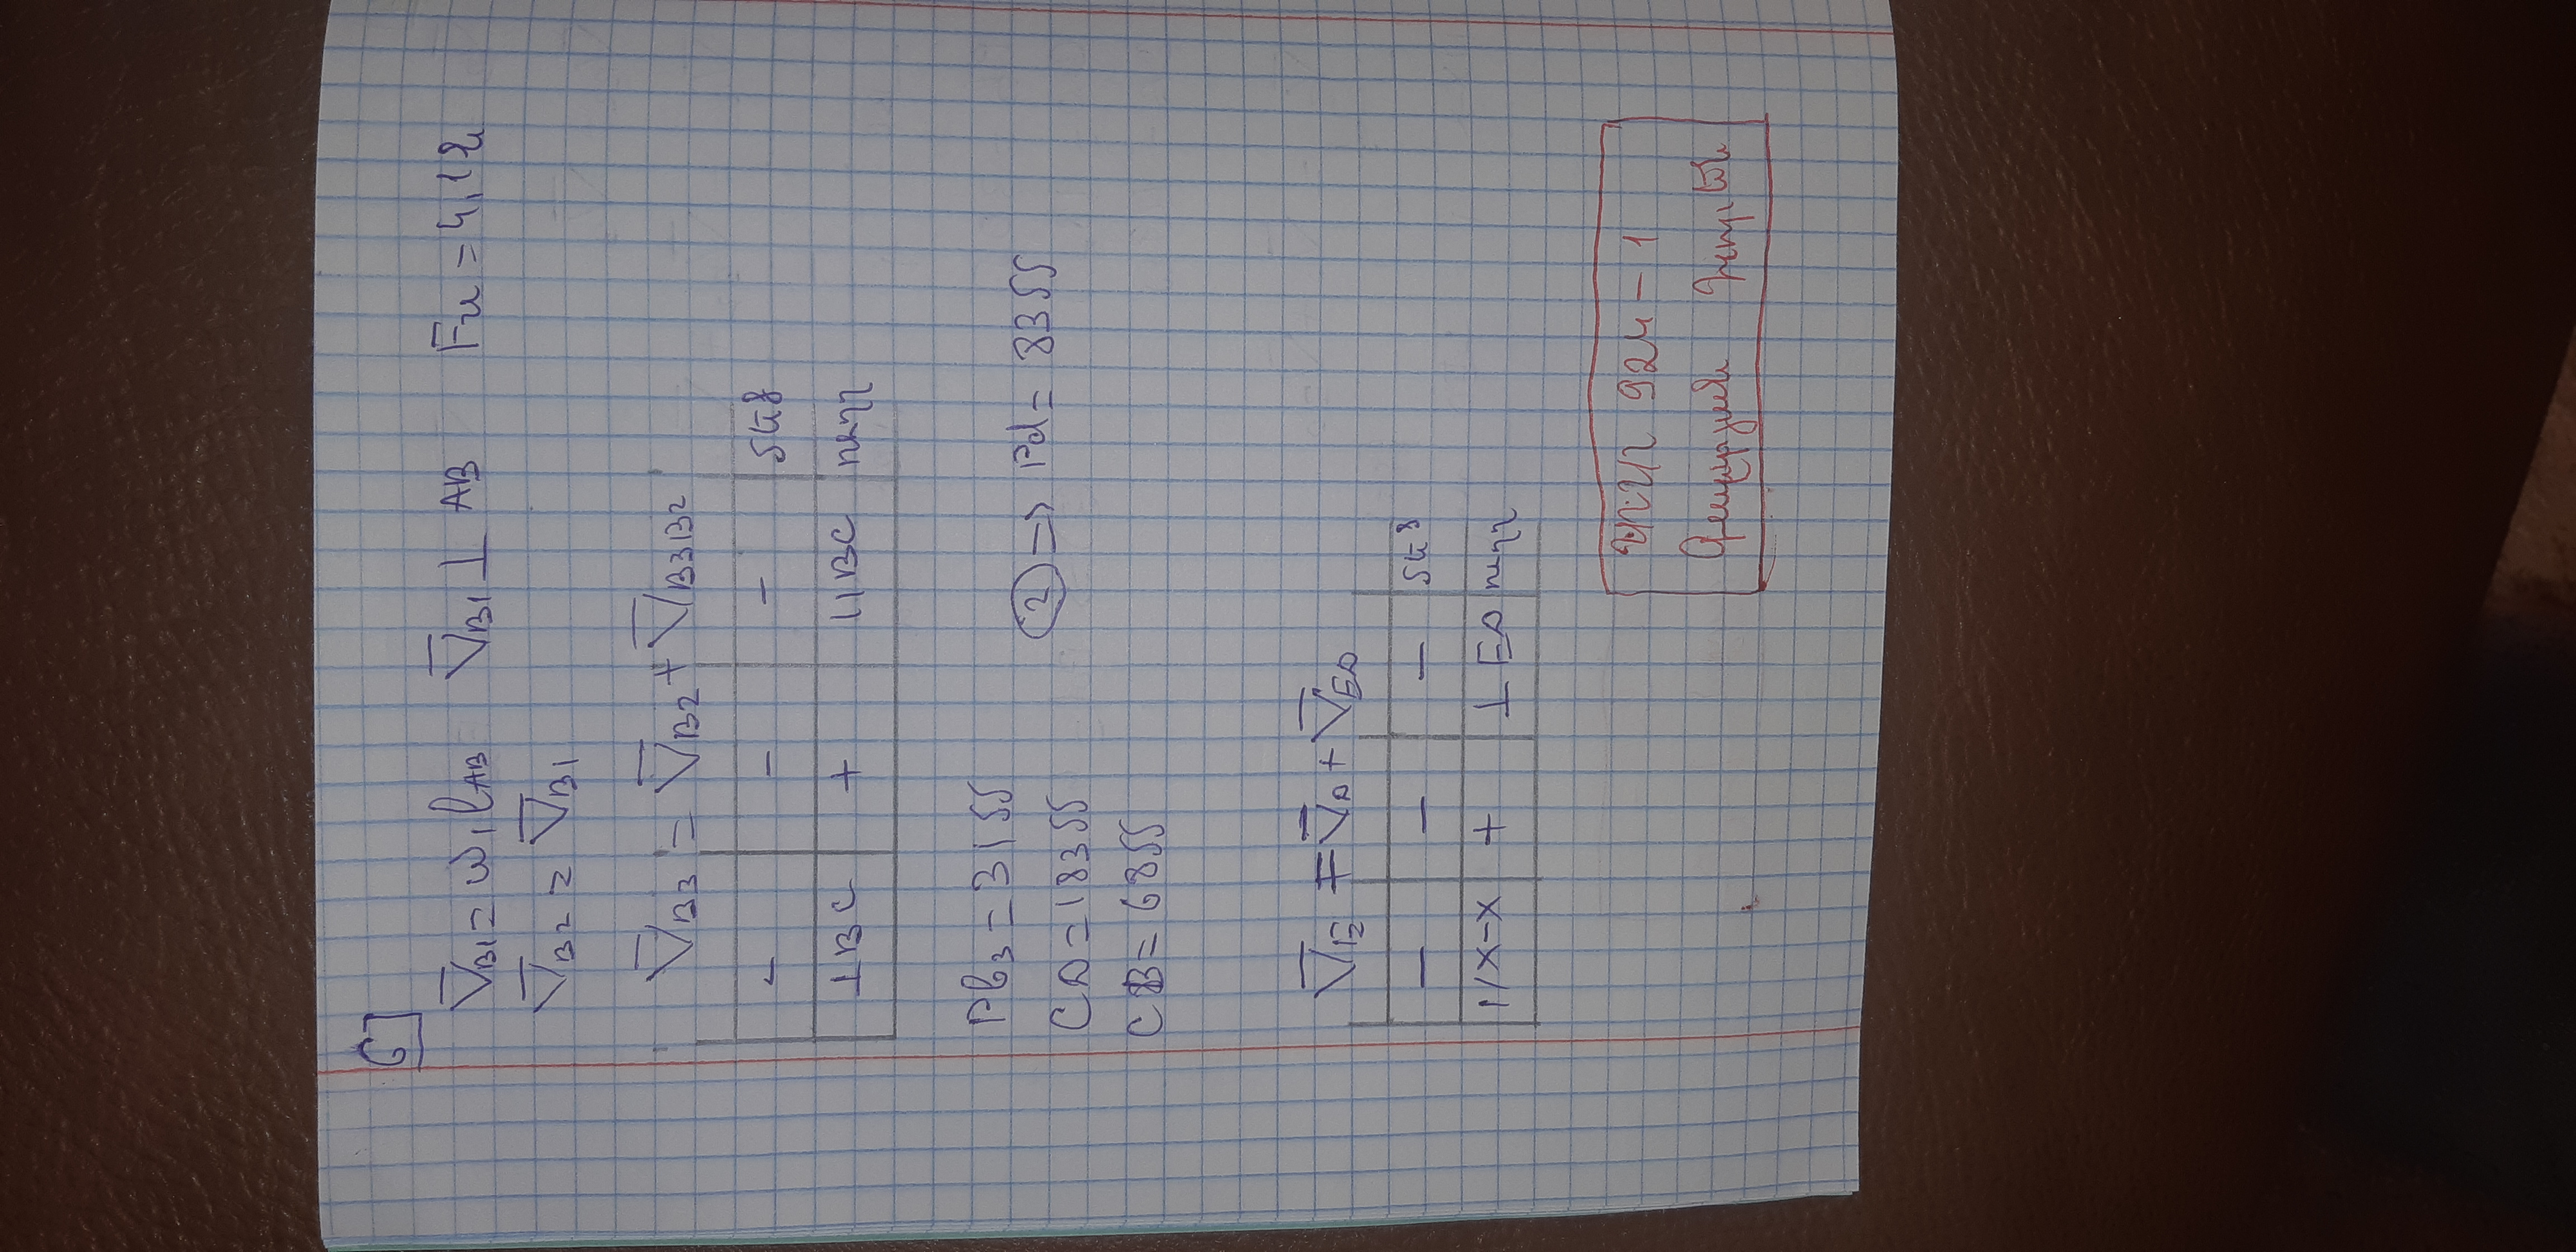 6
V̅B1 = ω1 ℓAB V̅B1 ⊥ AB Fu = 4,12
V̅B2 = V̅B1
V̅B3 = V̅B2 + V̅B3B2
- - - մեծ
⊥BC + ||BC ուղղ
Pb3 = 31 մմ
② => Pd = 83 մմ
CD = 183 մմ
CB = 68 մմ
V̅E = V̅D + V̅ED
- - - մեծ
//x-x + ⊥ED ուղղ
924-1